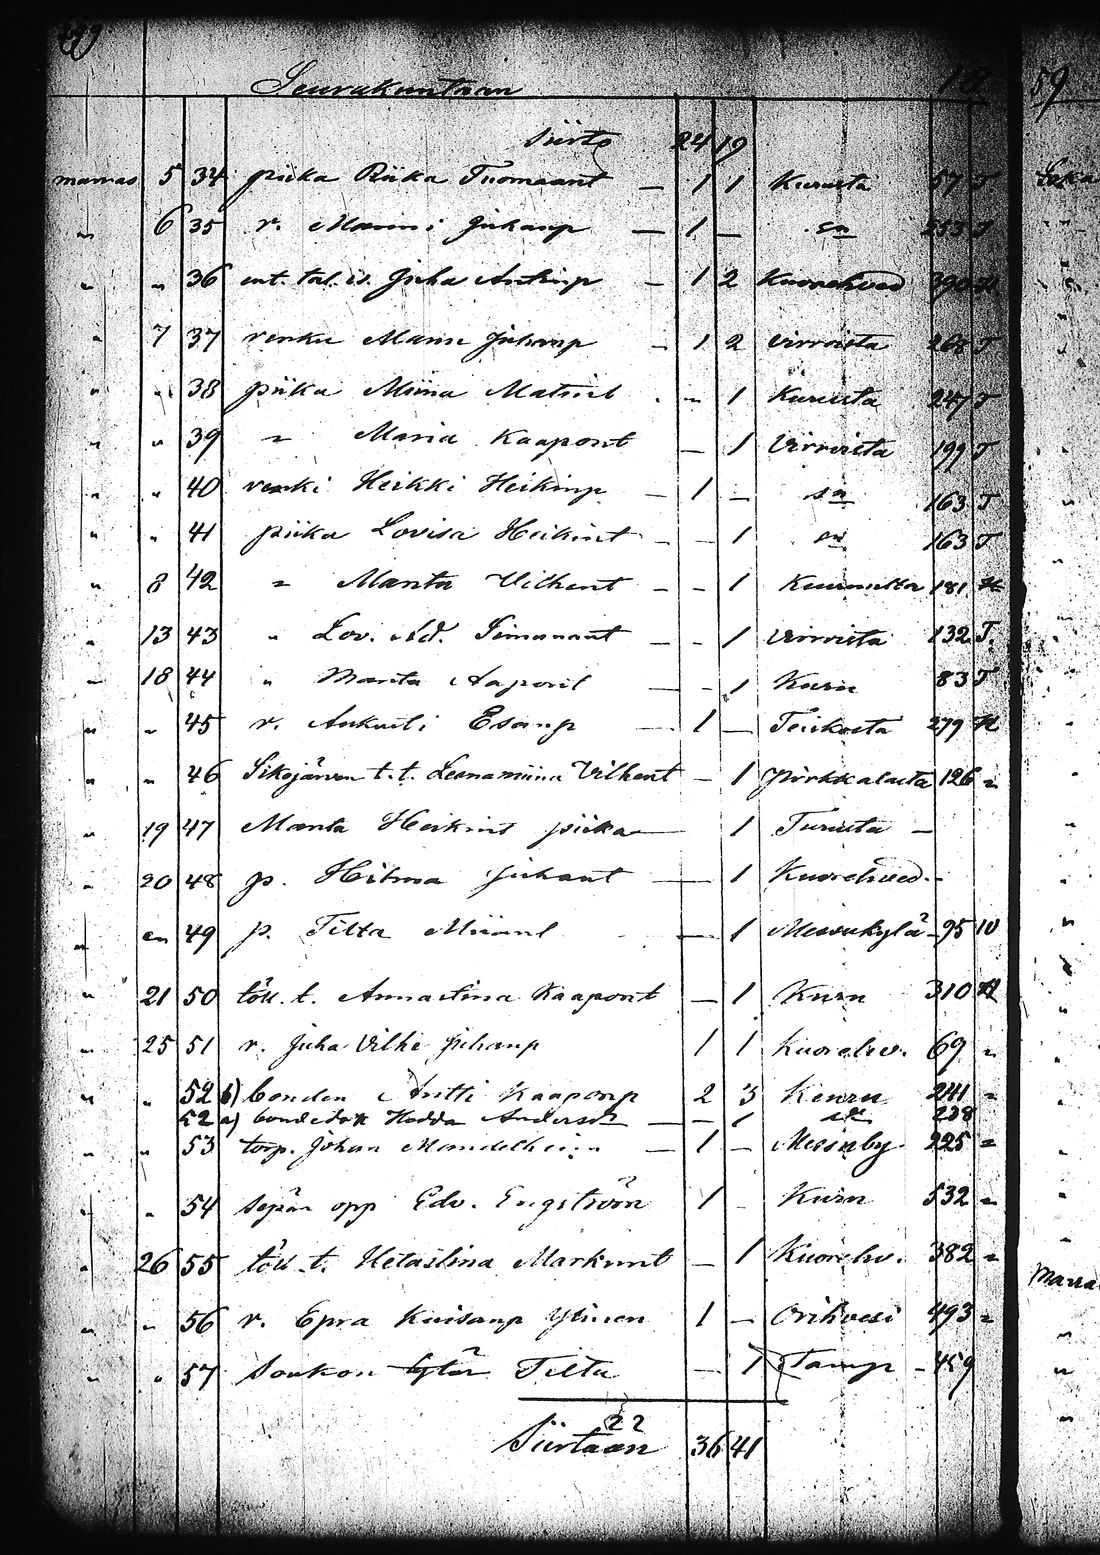 Seurakuntaan 18
59
Siirto 24 19
marras 5 34 piika Riika Tuomaant — 1 1 Kurusta 57 T
" 6 35 r. Manni Juhanp — 1 — sn 253 T
" " 36 ent. tal. is. Juha Antinp — 1 2 Kuorehved 390
" 7 37 renki Manu Juhanp — 1 2 Virroista 268 T
" " 38 piika Miina Matint - " 1 Kurusta 247 T
" " 39 " Maria Kaapont — 1 Virroista 199 T
" " 40 renki Heikki Heikinp — 1 — sn 163 T
" " 41 piika Lovisa Heikint - - 1 sn 163 T
" 8 42 " Manta Vilhent - - 1 Keuruulta 181 H
" 13 43 " Lov. Ad. Simonant — - 1 Virroista 132 T.
" 18 44 " Manta Aapont — - 1 Kuru 83 T
" " 45 r. Aukusti Esanp — 1 — Teiskosta 279 H
" " 46 t. t. Leenamiina Vilhent - 1 Pirkkalasta 126 "
" 19 47 Manta Heikint piika — 1 Turusta —
" 20 48 p. Hilma Juhant — 1 Kuorehved. -
" en 49 p. Tilta — 1 Messukylä - 95 10
" 21 50 töll. t. Annastina Kaapont — 1 Kuru 310 H
" 25 51 r. Juha Vilhe Juhanp 1 1 Kuorehv. 69 "
" " 52 b) bonden Antti Kaaponp 2 3 Keuru 241 "
52 a) Hedda Andersd — - 1 sn 238
" " 53 torp. Johan — 1 — Messuby 225 "
" " 54 sepän opp Edv. Engström 1 - Kuru 532 "
" 26 55 töll. t. Hetastina Markunt - 1 Kuorehv. 382 "
" " 56 r. Epra Kaisanp Ylinen 1 - Orihvesi 493 "
" " 57 Soukon tytär Tilta — 1 Tamp - 459
22
Siirtaan 36 41